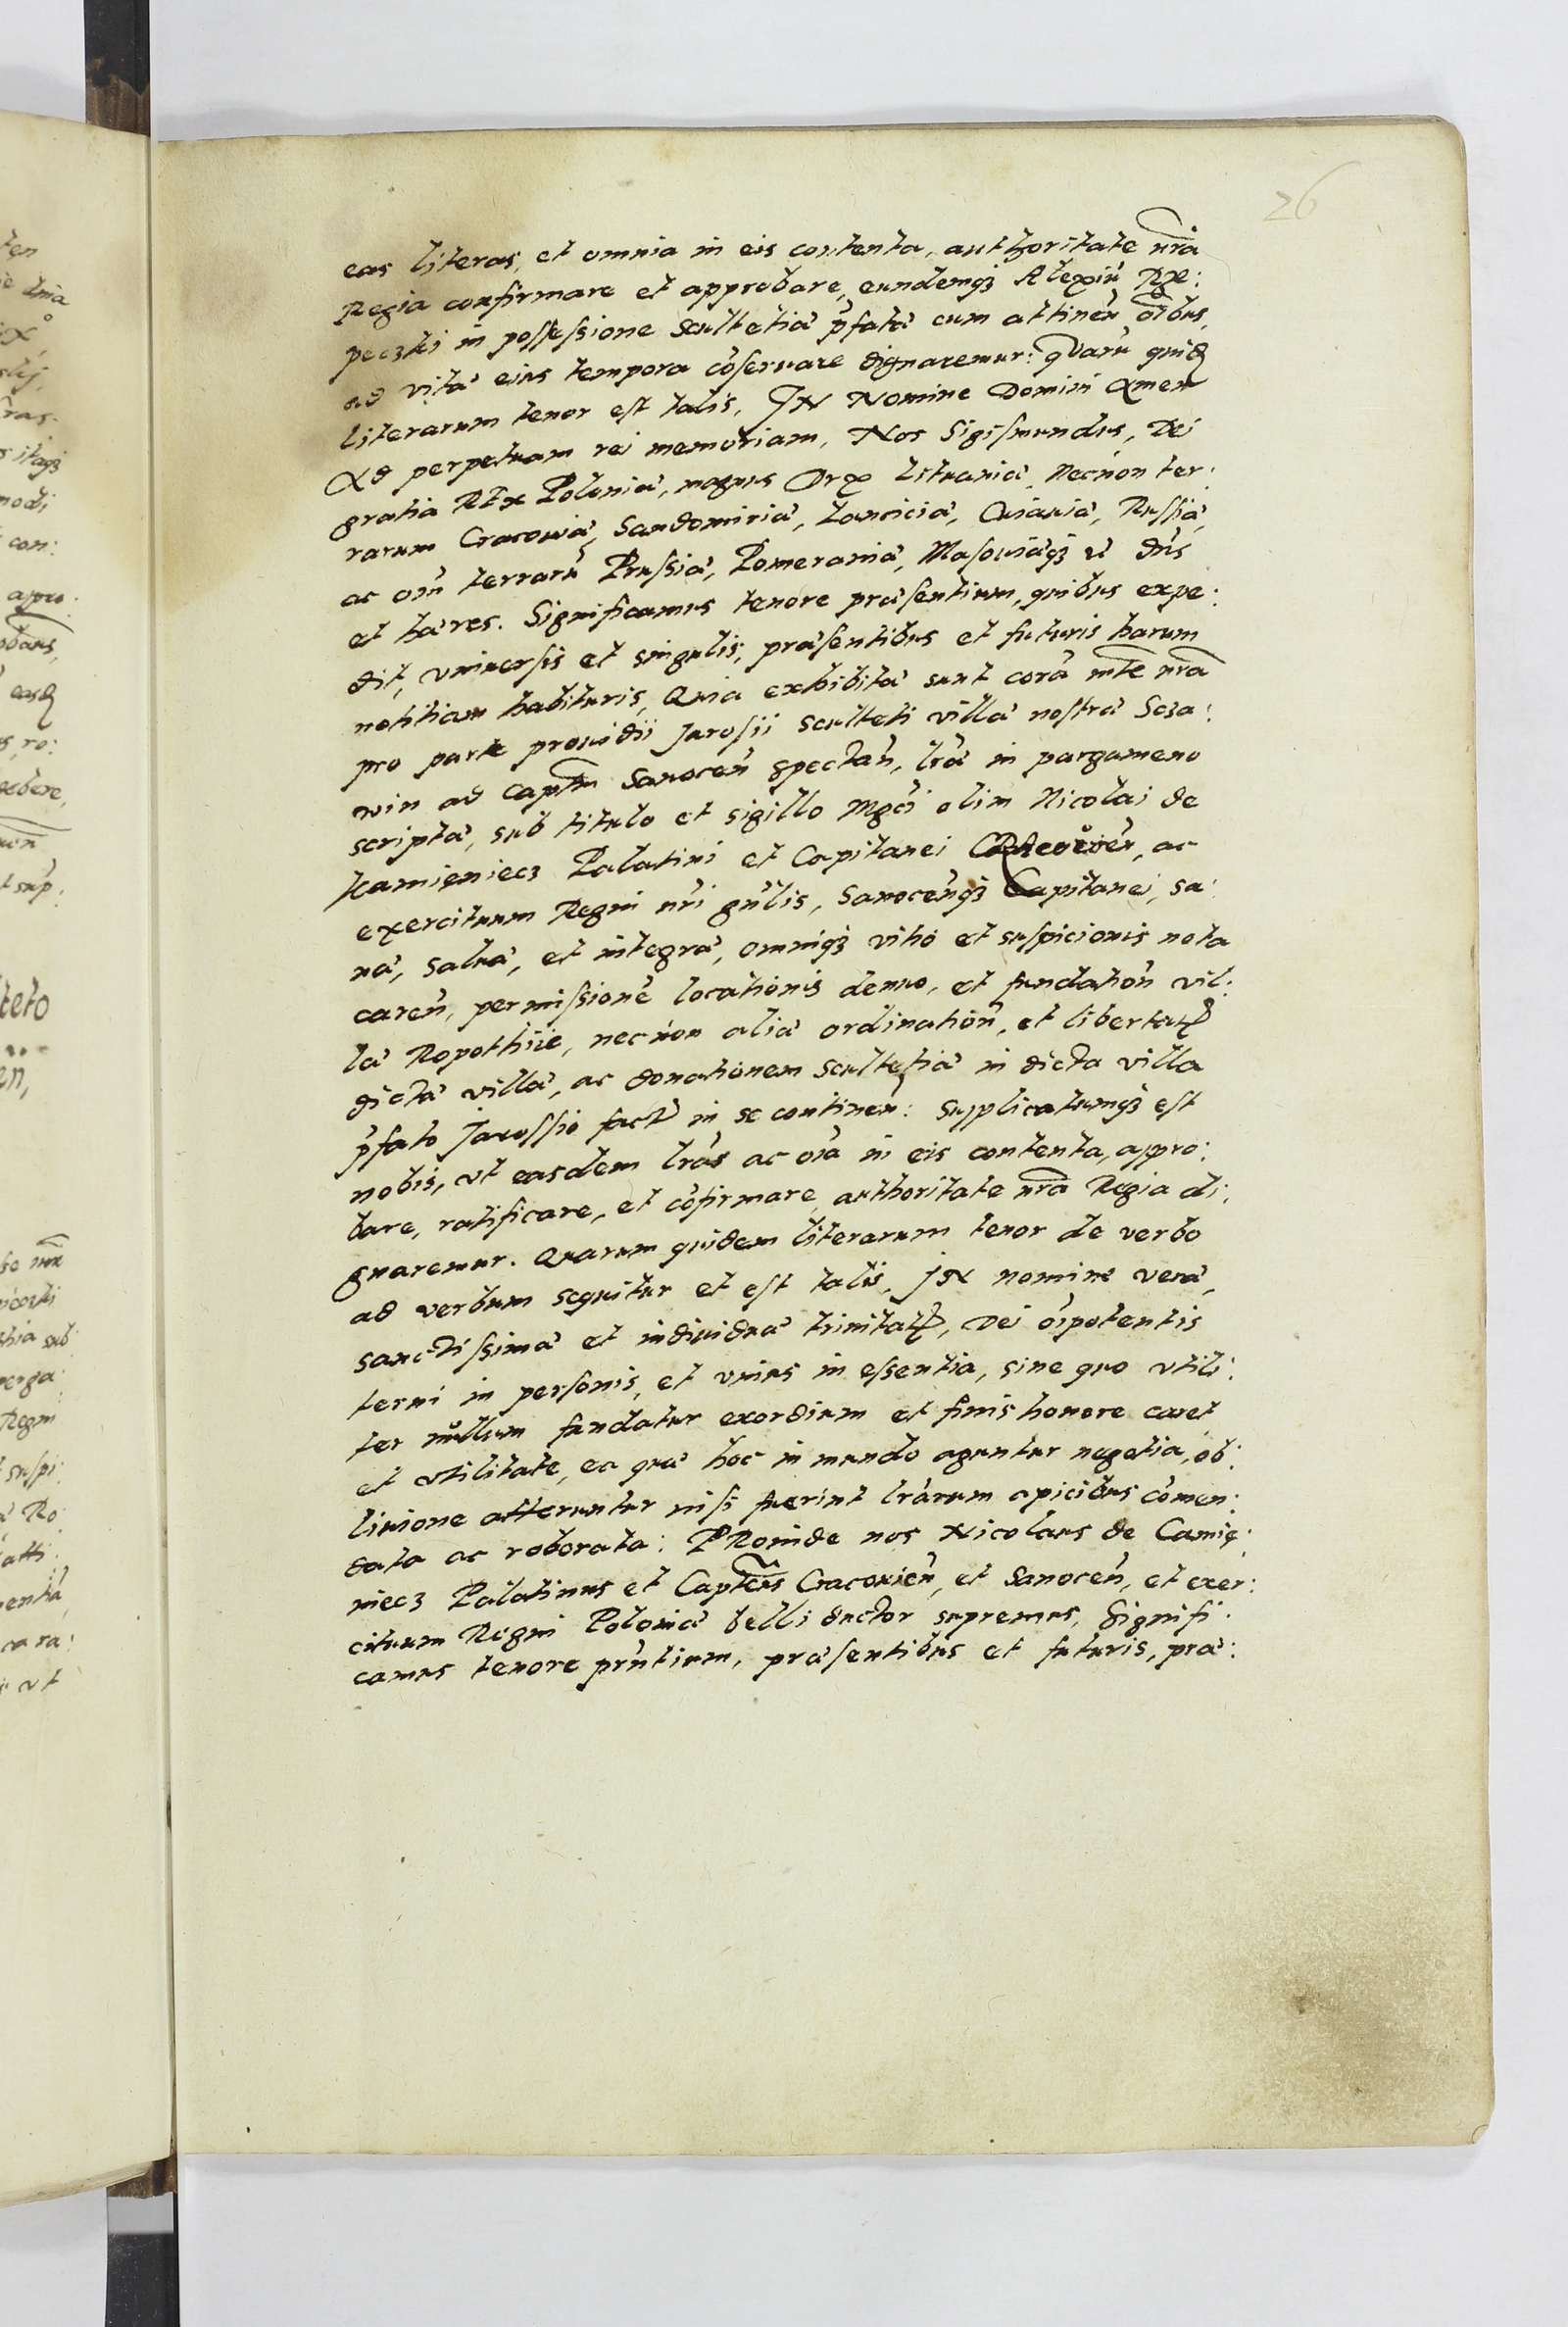 26
eas literas, et omnia in eis contenta, authoritate nr̃a
Regia confirmare et approbare, eundemqȝ Alexiũ Rze:
peczki in possessione scultetiæ p̃fatæ cum attineñ oĩbus,
ad vitæ eius tempora cõseruare dignaremur: quarũ quid
literarum tenor est talis, IN Nomine Domini Amen
Ad perpetuam rei memoriam, Nos Sigismundus, Dei
gratia REx Poloniæ, magnus Dux Lituaniæ, Necnon ter:
rarum Cracouiæ, Sandomiriæ, Lanciciæ, Cuiauiæ, Russiæ,
ac oĩm terrarũ Prussiæ, Pomeraniæ, Masouiæqȝ et dñs
et hæres. Significamus tenore præsentium, quibus expe:
dit, vniuersis et singulis, præsentibus et futuris harum
notitiam habituris, Quia exhibitæ sunt corã mte nr̃a
pro parte prouidii Jarosii sculteti villæ nostræ Scza:
win ad captm̃ Sanoceñ spectañ, lr̃æ in pargameno
scriptæ, sub titulo et sigillo Mgci olim Nicolai de
Kamieniecz Palatini et Capitanei Cracouieñ, ac
exercituum Regni nr̃i gñlis, Sanoceñqȝ Capitanei, sa:
næ, saluæ, et integræ, omniqȝ vitio et suspicionis nota
careñ, permissionẽ locationis denuo, et fundatioñ vil:
læ Ropothiie, necnon aliã ordinatioñ, et libertat
dictæ villæ, ac donationem scultetiæ in dicta villa
p̃fato Jarossio fact in se contineñ: supplicatumqȝ est
nobis, vt easdem lr̃as ac oĩa in eis contenta, appro:
bare, ratificare, et cõfirmare authoritate nr̃a Regia di:
gnaremur. Quarum quidem literarum tenor de verbo
ad verbum sequitur et est talis, IN nomine veræ,
sanctissimæ et indiuiduæ trinitat, Dei oĩpotentis
terni in personis, et vnius in essentia, sine quo vtili:
ter nullum fundatur exordium et finis honore caret
et vtilitate, ea quæ hoc in mundo aguntur negotia, ob:
liuione atteruntur nisi fuerint lr̃arum apicibus cõmen:
data ac roborata: PRoinde nos Nicolaus de Camie:
niecz Palatinus et Captens Cracouieñ, et Sanoceñ, et exer:
cituum Regni Poloniæ belli ductor supremus, Signifi:
camus tenore prñtium, præsentibus et futuris, præ: